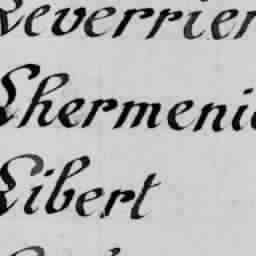 Leverrier
Lhermenie
Libert